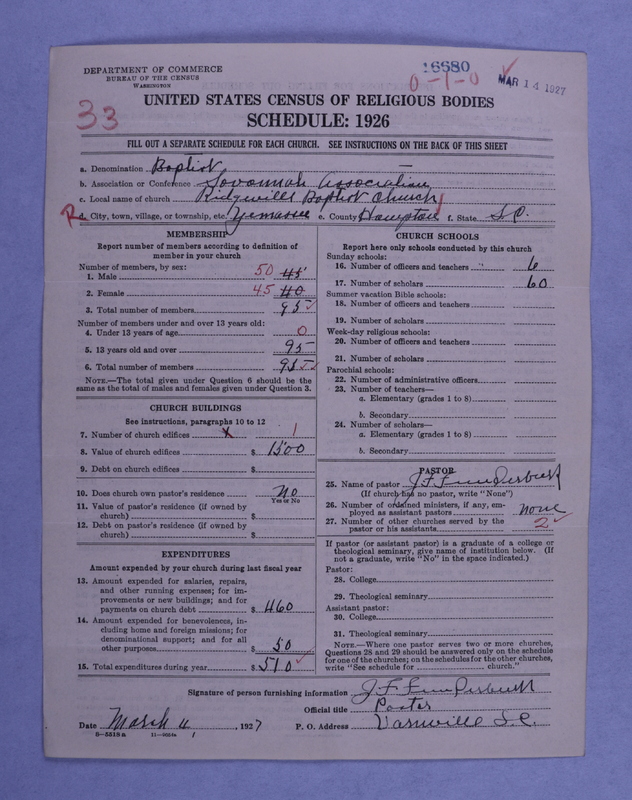 DEPARTMENT OF COMMERCE
BUREAU OF THE CENSUS
WASHINGTON
16680
0-1-0
MAR 14 1927
33
UNITED STATES CENSUS OF RELIGIOUS BODIES
SCHEDULE: 1926
FILL OUT A SEPARATE SCHEDULE FOR EACH CHURCH. SEE INSTRUCTIONS ON THE BACK OF THIS SHEET
a. Denomination Baptist
b. Association or Conference Savannah Association
c. Local name of church Ridgeville Baptist Church
R d. City, town, village, or township, etc. Yemassee e. County Hampton f. State S.C.
MEMBERSHIP
Report number of members according to definition of member in your church
Number of members, by sex:
1. Male 50 45
2. Female 45 40
3. Total number of members 95
Number of members under and over 13 years old:
4. Under 13 years of age 0
5. 13 years old and over 95
6. Total number of members 95
NOTE.—The total given under Question 6 should be the same as the total of males and females given under Question 3.
CHURCH BUILDINGS
See instructions, paragraphs 10 to 12
7. Number of church edifices x 1
8. Value of church edifices $ 1500
9. Debt on church edifices $
10. Does church own pastor's residence No
Yes or No
11. Value of pastor's residence (if owned by church) $
12. Debt on pastor's residence (if owned by church) $
EXPENDITURES
Amount expended by your church during last fiscal year
13. Amount expended for salaries, repairs, and other running expenses; for improvements or new buildings; and for payments on church debt $ 460
14. Amount expended for benevolences, including home and foreign missions; for denominational support; and for all other purposes $ 50
15. Total expenditures during year $ 510
CHURCH SCHOOLS
Report here only schools conducted by this church
Sunday schools:
16. Number of officers and teachers 6
17. Number of scholars 60
Summer vacation Bible schools:
18. Number of officers and teachers
19. Number of scholars
Week-day religious schools:
20. Number of officers and teachers
21. Number of scholars
Parochial schools:
22. Number of administrative officers
23. Number of teachers—
a. Elementary (grades 1 to 8)
b. Secondary
24. Number of scholars—
a. Elementary (grades 1 to 8)
b. Secondary
PASTOR
25. Name of pastor J F
(If church has no pastor, write "None")
26. Number of ordained ministers, if any, employed as assistant pastors none
27. Number of other churches served by the pastor or his assistants 2
If pastor (or assistant pastor) is a graduate of a college or theological seminary, give name of institution below. (If not a graduate, write "No" in the space indicated.)
Pastor:
28. College
29. Theological seminary
Assistant pastor:
30. College
31. Theological seminary
NOTE.—Where one pastor serves two or more churches, Questions 28 and 29 should be answered only on the schedule for one of the churches; on the schedules for the other churches, write "See schedule for church."
Signature of person furnishing information J F
Official title Pastor
Date March 4, 1927 P. O. Address Varnville S.C.
8-5518a